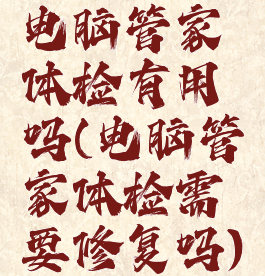 电脑管家
体检有用
吗(电脑管
家体检需
要修复吗)